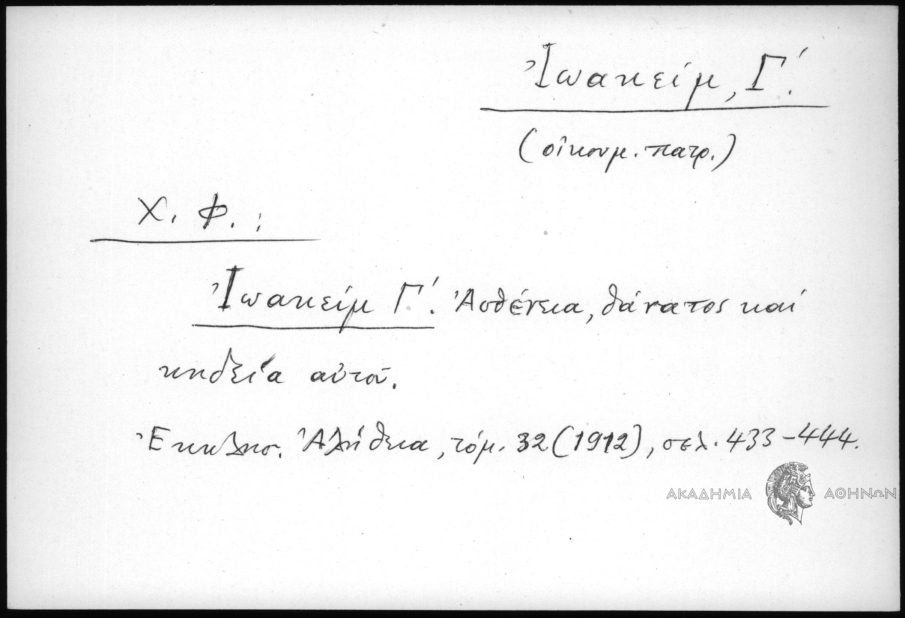 Ἰωακείμ, Γ΄.
(οἰκουμ. πατρ.)
Χ. Φ. :
Ἰωακείμ Γ΄. Ἀσθένεια, θάνατος καί
κηδεία αὐτοῦ.
Ἐκκλησ. Ἀλήθεια, τόμ. 32 (1912), σελ. 433-444.
ΑΚΑΔΗΜΙΑ ΑΘΗΝΩΝ